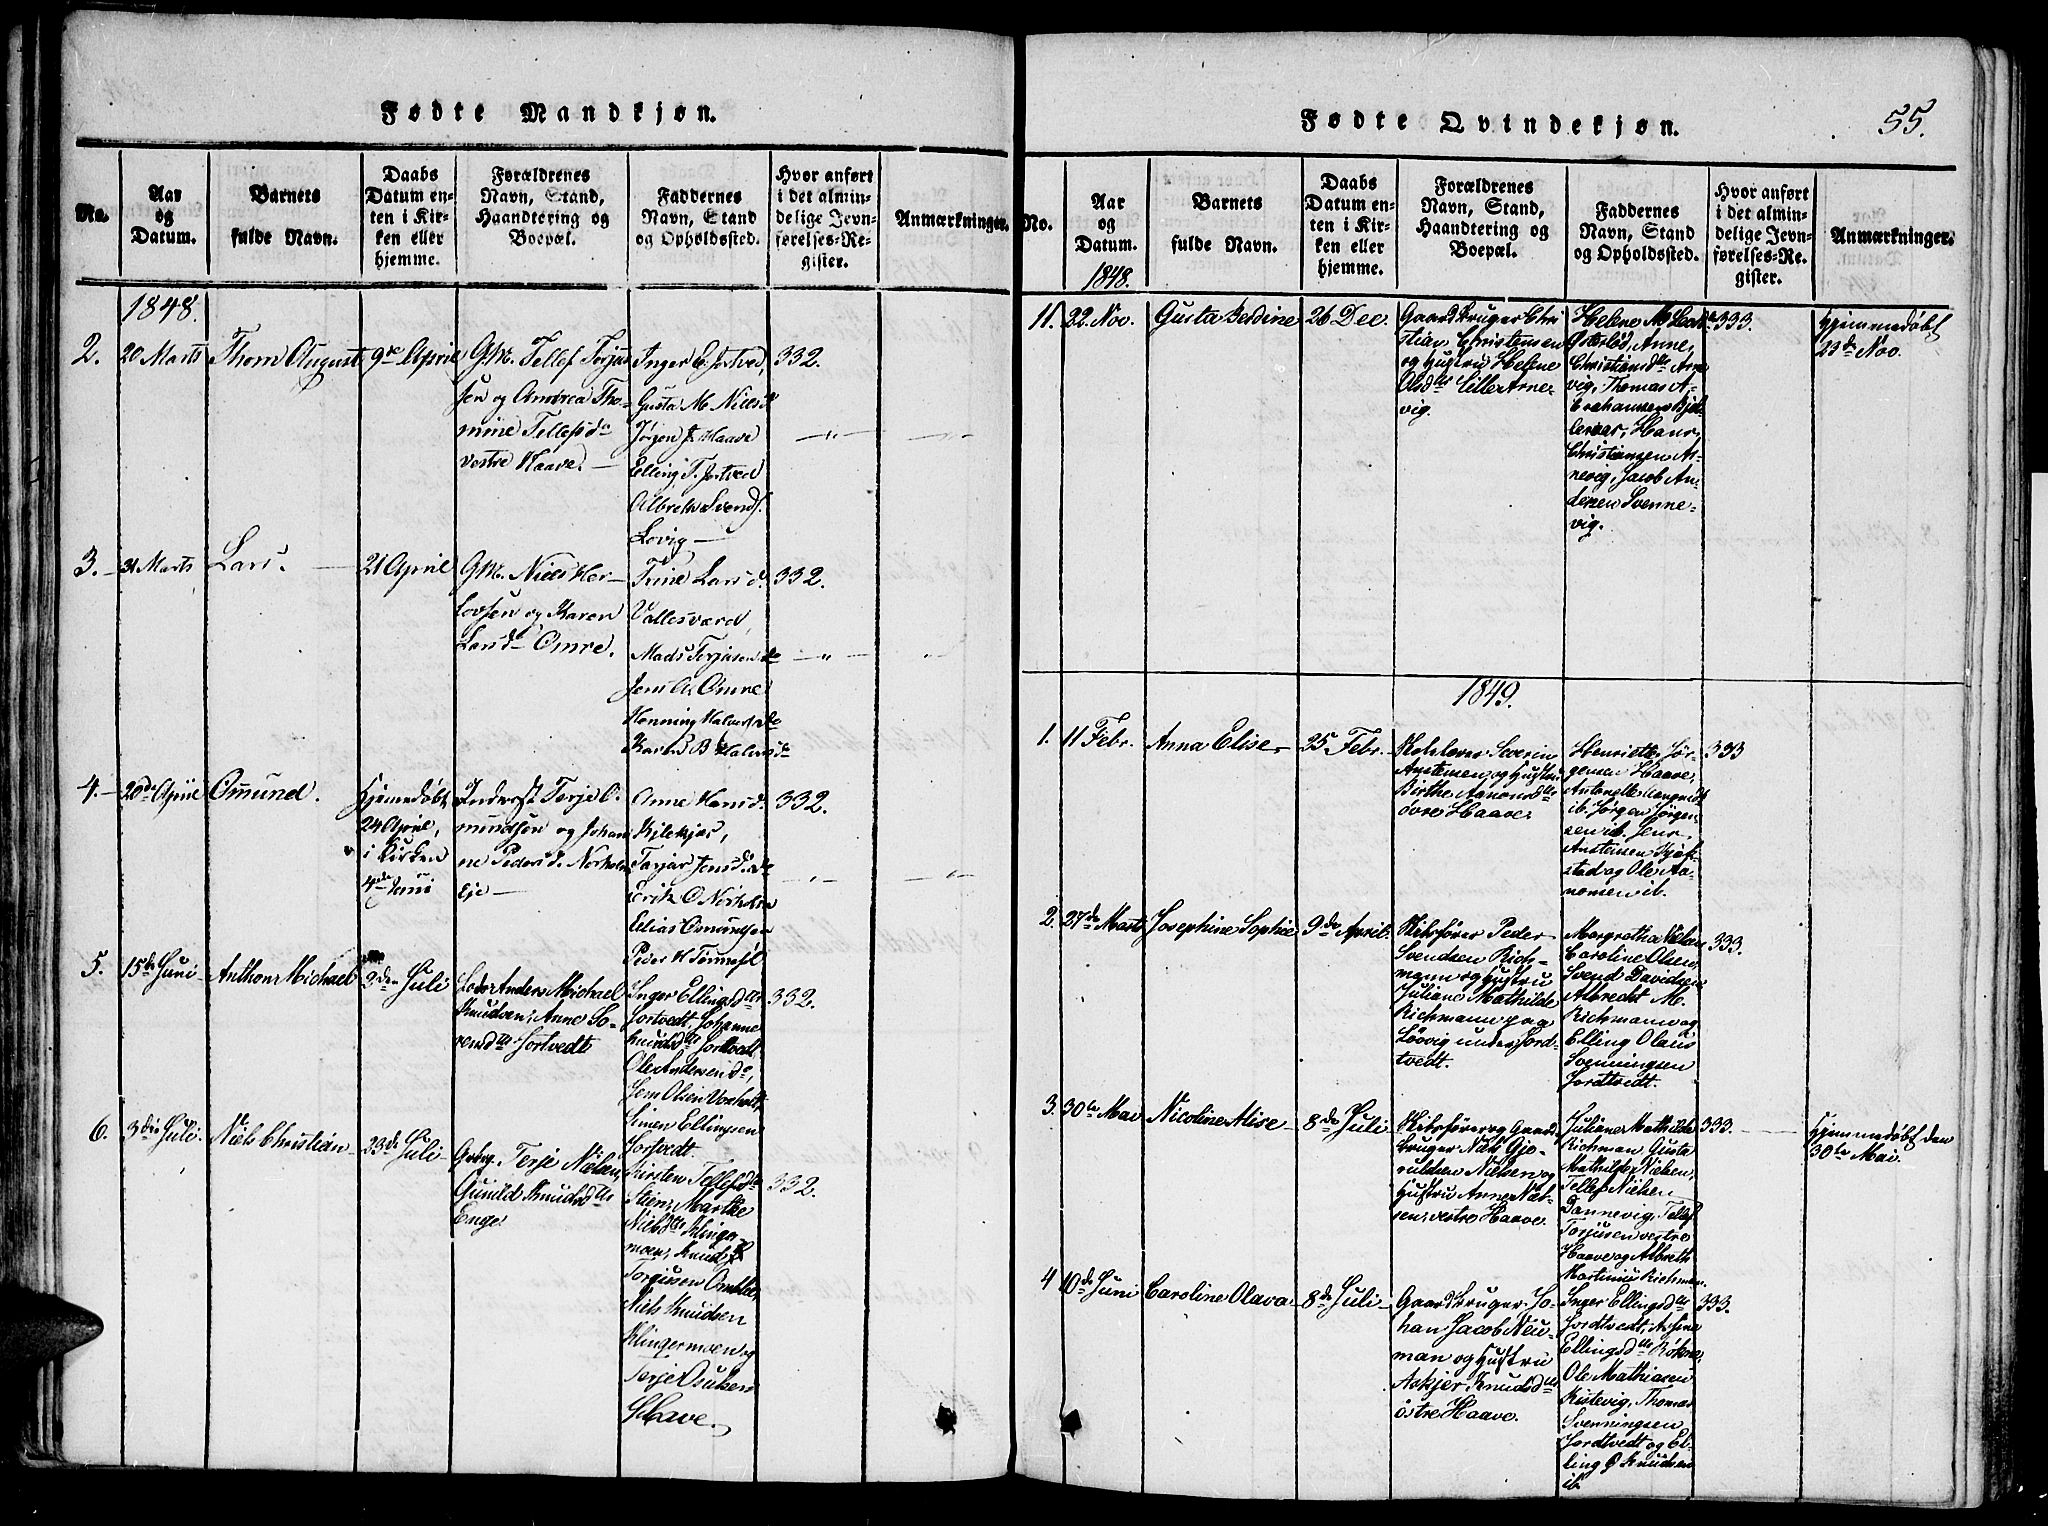 Fødte Mandkjøn.
No.
Aar
og
Datum.
Barnets
fulde Navn.
Daabs
Datum en-
ten i Kir-
ken eller
hjemme.
Forældrenes
Navn, Stand,
Haandtering og
Boepæl.
Faddernes
Navn, Stand
og Opholdssted.
Hvor anført
i det almin-
delige Jevn-
førelses-Re-
gister.
Anmærkninger.
1848.
2.
20 Marts
Thom August
9de April
GM. Tellef Torjus
sen og Andrea Tho-
mine Tellefsd.
vestre Haave.
Inger E. Jortved,
Gusta M. Nielsd.
Jørgen J. Haave
Elling T. Jortved
Albreth Svends.
Løvig
332.
3.
31 Marts
Lars.
21 April
GM. Niels Her-
lovsen og Karen
Larsd. Omre.
Trine Larsd.
Vallesværd,
Mads Terjusen
Jens A. Omre
Henning Halvors.
Karen B Halvorsd.
332.
4.
20de April
Omund.
Hjemmedøbt
24 April,
i Kirken
4de Juni
Inderst Terje O-
mundsen og Johan
ne Pedersd. Norholm
Eje
Anne Hansd.
Kilekjær,
Torjar Jensd.
Erik O Norholm
Elias Omundsen
Peder H Tønnesøl
332.
5.
15de Juni
Anthon Michael
2den Juli
Lods Anders Michael
Knudsen, Anne So-
rensdtr Jortvedt
Inger Ellingsdtr
Jortvedt, Johanne
Knudsdtr Jortvedt
Ole Andersen do,
Jens Olsen Vonholt,
Simen Ellingsen
Jortvedt
332.
6.
3die Juli.
Niels Christian
23de Juli
Gbrg. Terje Nielsen,
Gunild Knudsdtr
Enge
Kirsten Tellefsdtr
Steen, Marthe
Nielsdtr Klinger-
moen, Knud
Torjussen Omdal,
Niels Knudsen
Klingermoen og
Terje Osulsen
Haave.
332.
Fødte Qvindekjøn.
55.
No.
Aar
og
Datum.
1848.
Barnets
fulde Navn.
Daabs
Datum en-
ten i Kir-
ken eller
hjemme.
Forældrenes
Navn, Stand,
Haandtering og
Boepæl.
Faddernes
Navn, Stand
og Opholdssted.
Hvor anført
i det almin-
delige Jevn-
førelses-Re-
gister.
Anmærkninger.
11.
22. Nov.
Gusta Berdine
26 Dec.
Gaardbruger Chri
stian Christensen
og Hustru Helene
Olsdtr Lille Arne-
vig.
Helene M
Anne
Christiansdtr Arne
vig, Thomas A-
brahamsen
Hans
Christiansen Ar-
nevig, Jacob An-
dersen Svenne-
vig.
333.
Hjemmedøbt
23de Nov.
1849.
1.
11 Febr.
Anna Elise
25 Febr.
Severin
Anstensen og Hustru
Birthe Aanonsdtr
øvre Haave
Henriette Jør-
gensen Haave,
Antonette
ib. Jørgen Jørgen-
sen ib. Jens
Anstensen
stad og Ole Aa-
nonsen ib.
333
2.
27de Marts
Josephine Sophie
9de April
Skibsfører Peder
Svendsen Rich-
mann og Hustru
Juliane Mathilde
Richmann paa
Løvvig under Jord-
tvedt.
Margretha Nielsen
Caroline Olsen,
Svend Davidsen
Albrecht M.
Richmann og
Elling Olaus
Svenningsen
Jordtvedt.
333.
3.
30te Mai
Nicoline Alise
8de Juli
Skibsfører og Gaard-
bruger Niels Gje-
ruldsen Nielsen og
Hustru Anne Niel-
sen, vestre Haave
Juliane Mathilde
Richman, Gusta
Mathilde Nielsen,
Tellef Nielsen
Dannevig, Tellef
Torjusen vestre
Haave og Albreth
Martinius Richman.
333.
Hjemmedøbt den
30te Mai.
4
10de Juni
Caroline Olava
8de Juli
Gaardbruger Jo-
han Jacob Neu-
man og Hustru
Askjer Knudsdtr
østre Haave.
Inger Ellingsdtr
Jordtvedt,
Ellingsdtr
Ole Mathiasen
Kistevig, Thomas
Svenningsen
Jordtvedt og El-
ling Ø Knudsen
ib.
333.